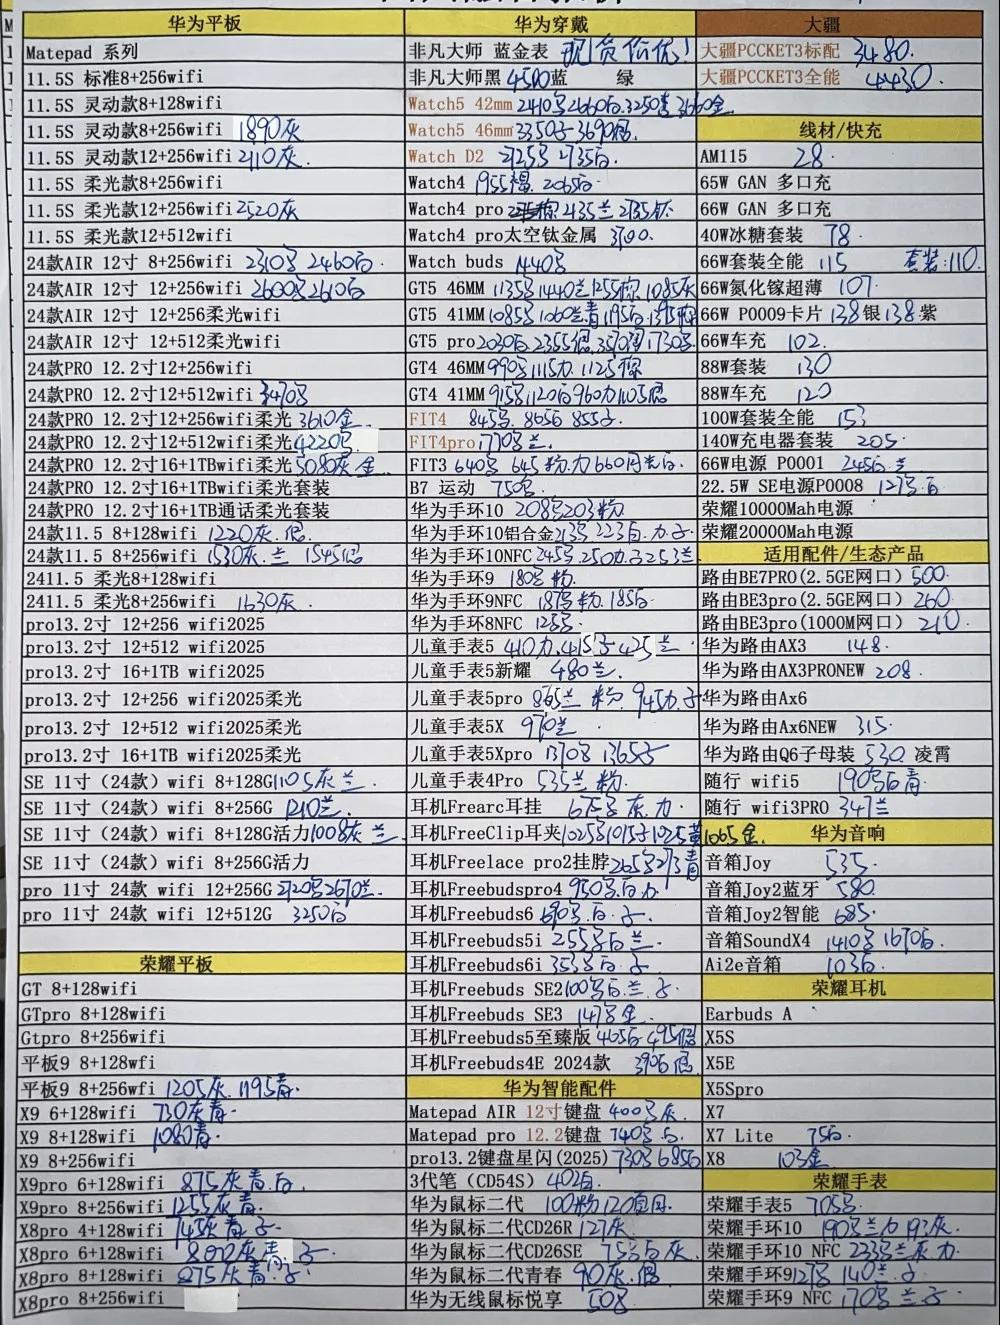 华为平板
Matepad 系列
11.5S 标准8+256wifi
11.5S 灵动款8+128wifi
11.5S 灵动款8+256wifi 1890灰
11.5S 灵动款12+256wifi 2110灰.
11.5S 柔光款8+256wifi
11.5S 柔光款12+256wifi 2520灰
11.5S 柔光款12+512wifi
24款AIR 12寸 8+256wifi 2310 2460白.
24款AIR 12寸 12+256wifi 2600 2610白
24款AIR 12寸 12+256柔光wifi
24款AIR 12寸 12+512柔光wifi
24款PRO 12.2寸12+256wifi
24款PRO 12.2寸12+512wifi
24款PRO 12.2寸12+256wifi柔光 3610金.
24款PRO 12.2寸12+512wifi柔光 4220
24款PRO 12.2寸16+1TBwifi柔光 5080灰 金.
24款PRO 12.2寸16+1TBwifi柔光套装
24款PRO 12.2寸16+1TB通话柔光套装
24款11.5 8+128wifi 1220灰.
24款11.5 8+256wifi 1530灰.兰 1545
2411.5 柔光8+128wifi
2411.5 柔光8+256wifi 1630灰.
pro13.2寸 12+256 wifi2025
pro13.2寸 12+512 wifi2025
pro13.2寸 16+1TB wifi2025
pro13.2寸 12+256 wifi2025柔光
pro13.2寸 12+512 wifi2025柔光
pro13.2寸 16+1TB wifi2025柔光
SE 11寸（24款）wifi 8+128G 1105灰兰.
SE 11寸（24款）wifi 8+256G 1210兰.
SE 11寸（24款）wifi 8+128G活力 1008灰 兰.
SE 11寸（24款）wifi 8+256G活力
pro 11寸 24款 wifi 12+256G 2670兰.
pro 11寸 24款 wifi 12+512G 3250白
荣耀平板
GT 8+128wifi
GTpro 8+128wifi
Gtpro 8+256wifi
平板9 8+128wfi
平板9 8+256wifi 1205灰 1195青.
X9 6+128wifi 730灰青.
X9 8+128wifi 1080青.
X9 8+256wifi
X9pro 6+128wifi 875灰青.白.
X9pro 8+256wifi 1255灰青.
X8pro 4+128wifi 745灰青
X8pro 6+128wifi
X8pro 8+128wifi 875灰青.
X8pro 8+256wifi
华为穿戴
非凡大师 蓝金表 现货价优!
非凡大师黑4500蓝 绿
Watch5 42mm 2410 2660白.3250青3660金
Watch5 46mm 3350 3690
Watch D2 2125 2135白.
Watch4 1955 2065白.
Watch4 pro 2135兰2735灰.
Watch4 pro太空钛金属 3700.
Watch buds 1440
GT5 46MM 1135 1440兰1255棕1085灰
GT5 41MM 1085 1060兰青1195白1395棕
GT5 pro 2030白2355
GT4 46MM 990 1115力 1125棕
GT4 41MM 915 1120白960力1105
FIT4 845 865白 855
FIT4pro 1770 兰.
FIT3 640 645粉.力660月光白.
B7 运动 750
华为手环10 208 203粉
华为手环10铝合金 213 223白.力.
华为手环10NFC 245 250力 253兰
华为手环9 180 粉.
华为手环9NFC 187 粉.185白.
华为手环8NFC 125
儿童手表5 410力.415 425兰.
儿童手表5新耀 480兰.
儿童手表5pro 865兰 粉.945力.
儿童手表5X 970兰
儿童手表5Xpro 1370 1365
儿童手表4Pro 535兰粉.
耳机Frearc耳挂 675 灰.力.
耳机FreeClip耳夹 1025 1015 1025黄1065金.
耳机Freelace pro2挂脖 265 273青
耳机Freebudspro4 950 白力
耳机Freebuds6 690 .白.
耳机Freebuds5i 255 白兰.
耳机Freebuds6i 353 白.
耳机Freebuds SE2 100 白.兰.
耳机Freebuds SE3 147 金.
耳机Freebuds5至臻版 465白495
耳机Freebuds4E 2024款 390白
华为智能配件
Matepad AIR 12寸键盘 400 灰.
Matepad pro 12.2键盘 740 白.
pro13.2键盘星闪(2025) 730 685白
3代笔（CD54S） 402白.
华为鼠标二代 100粉 120
华为鼠标二代CD26R 127灰.
华为鼠标二代CD26SE 75 白灰.
华为鼠标二代青春 90灰.
华为无线鼠标悦享 50
大疆
大疆PCCKET3标配 3480.
大疆PCCKET3全能 4430.
线材/快充
AM115 28.
65W GAN 多口充
66W GAN 多口充
40W冰糖套装 78.
66W套装全能 115 套装:110.
66W氮化镓超薄 107.
66W P0009卡片 138银138紫
66W车充 102.
88W套装 130
88W车充 120
100W套装全能 153
140W充电器套装 205.
66W电源 P0001 245白.兰
22.5W SE电源P0008 127 白
荣耀10000Mah电源
荣耀20000Mah电源
适用配件/生态产品
路由BE7PRO(2.5GE网口) 500.
路由BE3pro(2.5GE网口) 260.
路由BE3pro(1000M网口) 210.
华为路由AX3 148.
华为路由AX3PRONEW 208.
华为路由Ax6
华为路由Ax6NEW 315.
华为路由Q6子母装 530 凌霄
随行 wifi5 190 白青.
随行 wifi3PRO 347兰
华为音响
音箱Joy 535.
音箱Joy2蓝牙 580
音箱Joy2智能 685.
音箱SoundX4 1410 1670白.
Ai2e音箱 103白.
荣耀耳机
Earbuds A
X5S
X5E
X5Spro
X7
X7 Lite 75白.
X8 103金
荣耀手表
荣耀手表5 705
荣耀手环10 190 兰力197灰.
荣耀手环10 NFC 233 兰灰力
荣耀手环9 127 140兰.
荣耀手环9 NFC 170 兰